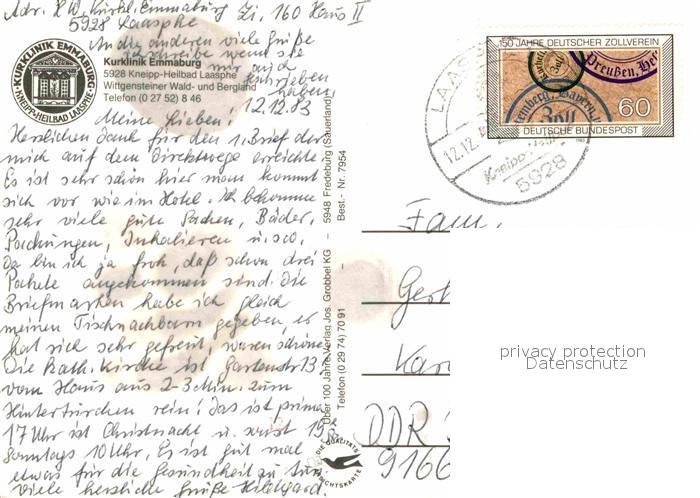 Adr. H W, Kurkl. Emmaburg Zi, 160 Haus II
5928 Laasphe
An die anderen viele Grüße
schreibe wenn sie
mir auch
geschrieben
haben.
KURKLINIK EMMABURG
KNEIPP-HEILBAD LAASPHE
Kurklinik Emmaburg
5928 Kneipp-Heilbad Laasphe
Wittgensteiner Wald- und Bergland
Telefon (0 27 52) 8 46
12.12.83
Meine Lieben!
Herzlichen Dank für den 1. Brief der
mich auf dem Direktwege erreichte.
Es ist sehr schön hier man kommt
sich vor wie im Hotel. Ich bekomme
sehr viele gute Sachen, Bäder,
Packungen, Inhalieren u.so.
Da bin ich ja froh, daß schon drei
Pakete angekommen sind. Die
Briefmarken habe ich gleich
meinen Tischnachbarn gegeben, er
hat sich sehr gefreut, waren schöne
Die Kath. Kirche ist Gartenstr 13
vom Haus aus 2-3 Min. zum
Hintertürchen rein! das ist prima
17 Uhr ist Christnacht u. sonst 19
Sonntags 10 Uhr, Es ist gut mal
etwas für die Gesundheit zu tun.
Viele herzliche Grüße Hildegard.
Über 100 Jahre Verlag Jos. Grobbel KG - 5948 Fredeburg (Sauerland)
Telefon (0 29 74) 70 91 - Best.- Nr. 7954
DIE QUALITÄTS
ANSICHTSKARTE
150 JAHRE DEUTSCHER ZOLLVEREIN
Preußen, Hes
Zoll
Bayern,
Zoll
60
DEUTSCHE BUNDESPOST
1983
LAAS
12.12.
Kneipp-
5928
Fam.
Gest
Kar
DDR
9166
privacy protection
Datenschutz